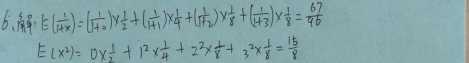 6、解：E(1/(1+x))=(1/(1+0))×1/2+(1/(1+1))×1/4+(1/(1+2))×1/8+(1/(1+3))×1/8=67/96
E(x²)=0×1/2+1²×1/4+2²×1/8+3²×1/8=15/8